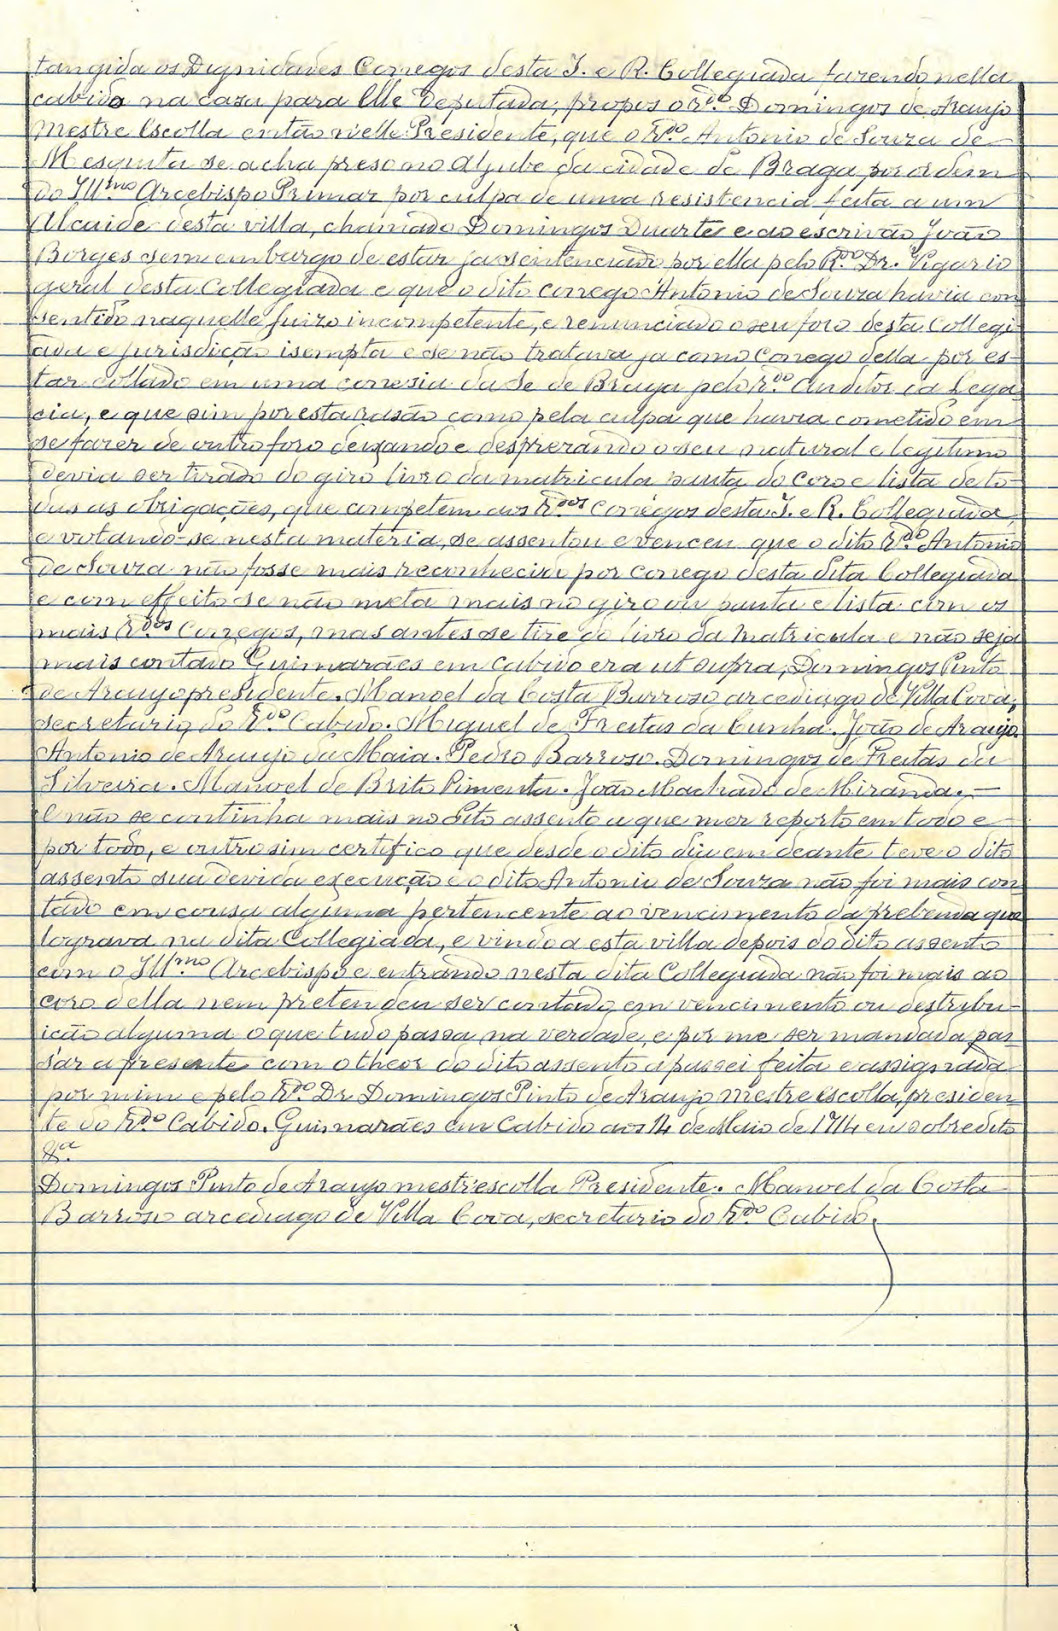 tangida os Dignidades Conegos desta I. e R. Collegiada fazendo nella
cabido na caza para elle deputada; propos o R.do Domingos de Araujo
Mestre Escolla então nelle Presidente, que o R.do Antonio de Souza de
Mesquita se acha preso no Aljube da cidade de Braga por ordem
do Ill.mo Arcebispo Primaz por culpa de uma resistencia feita a um
Alcaide desta villa, chamado Domingos Duarte e ao escrivão João
Borges sem embargo de estar ja sentenciado por ella pelo R.do Dr. Vigario
geral desta Collegiada e que o dito conego Antonio de Souza havia con
sentido naquelle juizo incompetente, e renunciado o seu foro desta Collegi
ada e jurisdição isempta e se não tratava ja como Conego della por es-
tar collado em uma conesia da Se de Braga pelo R.do Auditor da Lega
cia, e que sim por esta rasão como pela culpa que havia cometido em
se fazer de outro foro deixando e desprezando o seu natural e legitimo
devia ser tirado do giro livro da matricula pauta do coro e lista de to-
das as obrigações, que competem aos R.dos Conegos desta I. e R. Collegiada,
e votando-se nesta materia, se assentou e venceu que o dito R.do Antonio
de Souza não fosse mais reconhecido por conego desta dita Collegiada
e com effeito se não meta mais no giro ou pauta e lista com os
mais R.dos Conegos, mas antes se tire do livro da Matricula e não seja
mais contado Guimarães em Cabido era ut supra, Domingos Pinto
de Araujo presidente. Manoel da Costa Barroso arcediago de Villa Cova,
secretario do R.do Cabido. Miguel de Freitas da Cunha. João de Araujo.
Antonio de Araujo da Maia. Pedro Barroso. Domingos de Freitas da
Silveira. Manoel de Brito Pimenta. João Machado de Miranda. —
E não se continha mais no dito assento a que mer reporto em todo e
por todo, e outrosim certifico que desde o dito dia em deante teve o dito
assento sua devida execução e o dito Antonio de Souza não foi mais con
tado em cousa alguma pertencente ao vencimento da prebenda que
lograva na dita Collegiada, e vindo a esta villa depois do dito assento
com o Ill.mo Arcebispo e entrando nesta dita Collegiada não foi mais ao
coro della nem pretendeu ser contado em vencimento ou destribu-
ição alguma o que tudo passa na verdade, e por me ser mandada pas
sar a presente com o theor do dito assento a passei feita e assignada
por mim e pelo R.do Dr. Domingos Pinto de Araujo mestre escolla, presiden
te do R.do Cabido. Guimarães em Cabido aos 14 de Maio de 1714 eu sobredito
&.a
Domingos Pinto de Araujo mestrescolla Presidente. Manoel da Costa
Barroso arcediago de Villa Cova, secretario do R.do Cabido.